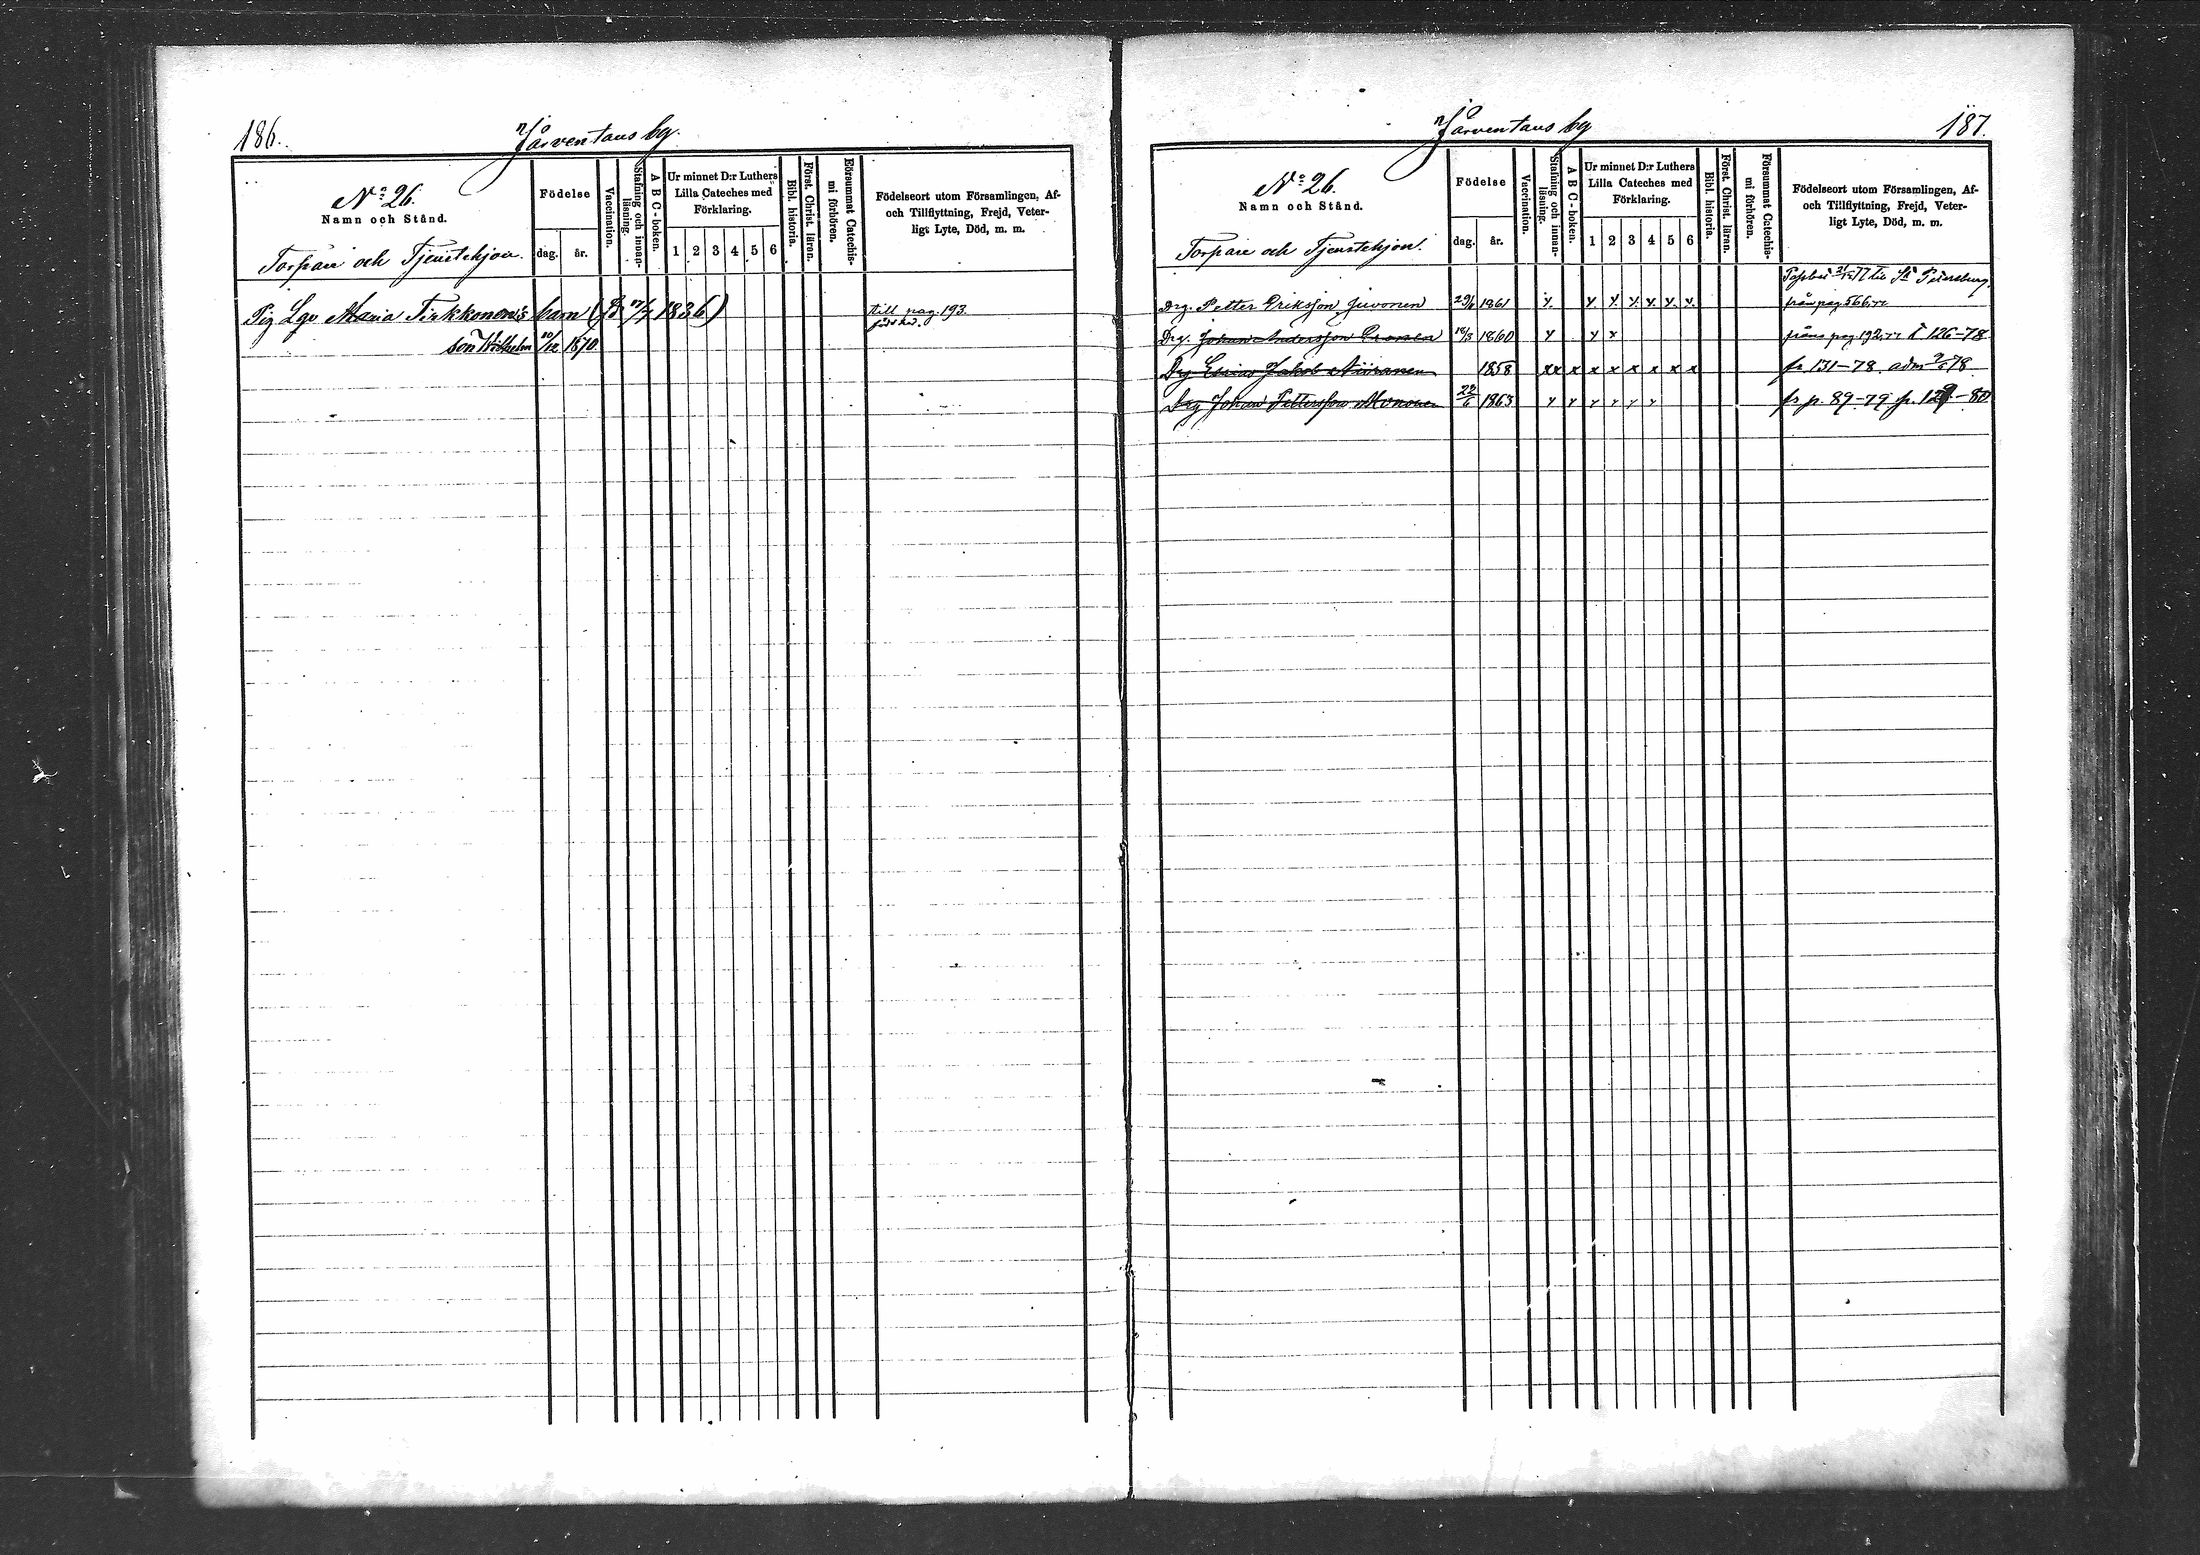 186.
Järventaus by.
No 26.
Namn och Stånd.
Torpare och Tjenstehjon.
Födelse
dag. år.
Vaccination.
Stafning och innanläsning.
A B C-boken.
Ur minnet D:r Luthers
Lilla Cateches med
Förklaring.
1 2 3 4 5 6
Bibl. historia.
Först. Christ. läran.
Försummat Catechismi förhören.
Födelseort utom Församlingen, Af-
och Tillflyttning, Frejd, Veter-
ligt Lyte, Död, m. m.
Pig Lqv Maria Tirkkonens barn (f. 17/7 1836) till pag. 193.
son Wilhelm 10/12 1870
187.
Järventaus by
No 26.
Namn och Stånd.
Torpare och Tjenstehjon.
Födelse
dag. år.
Vaccination.
Stafning och innanläsning.
A B C-boken.
Ur minnet D:r Luthers
Lilla Cateches med
Förklaring.
1 2 3 4 5 6
Bibl. historia.
Först. Christ. läran.
Försummat Catechismi förhören.
Födelseort utom Församlingen, Af-
och Tillflyttning, Frejd, Veter-
ligt Lyte, Död, m. m.
77 till St Petersburg.
Drg. Petter Eriksson Juvonen 1861 x. x. x. x. x. x. x. från pag 566
Drg. Johan Andersson 18/3 1860 x x x från pag 192 126-78
Drg Jakob Niiranen 1858 xx x x x x x x x fr. 131-78. adm 78
Drg Johan Pettersson Mononen 1863 x x x x x x fr p. 89-79 p. 129-80